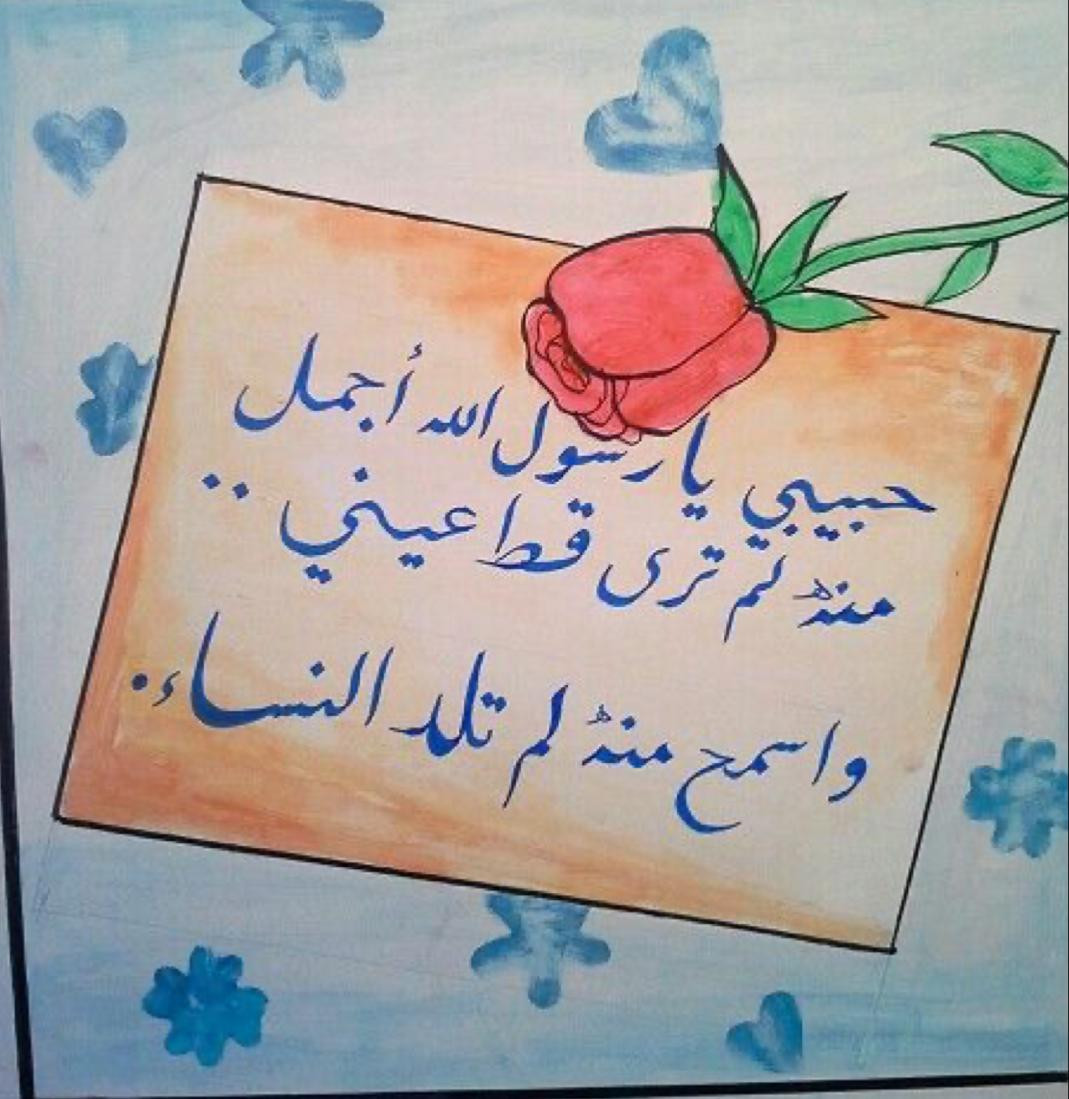 حبيبي يا رسول الله أجمل
منكَ لم ترى قط عيني ..
واسمح منكَ لم تلد النساء.